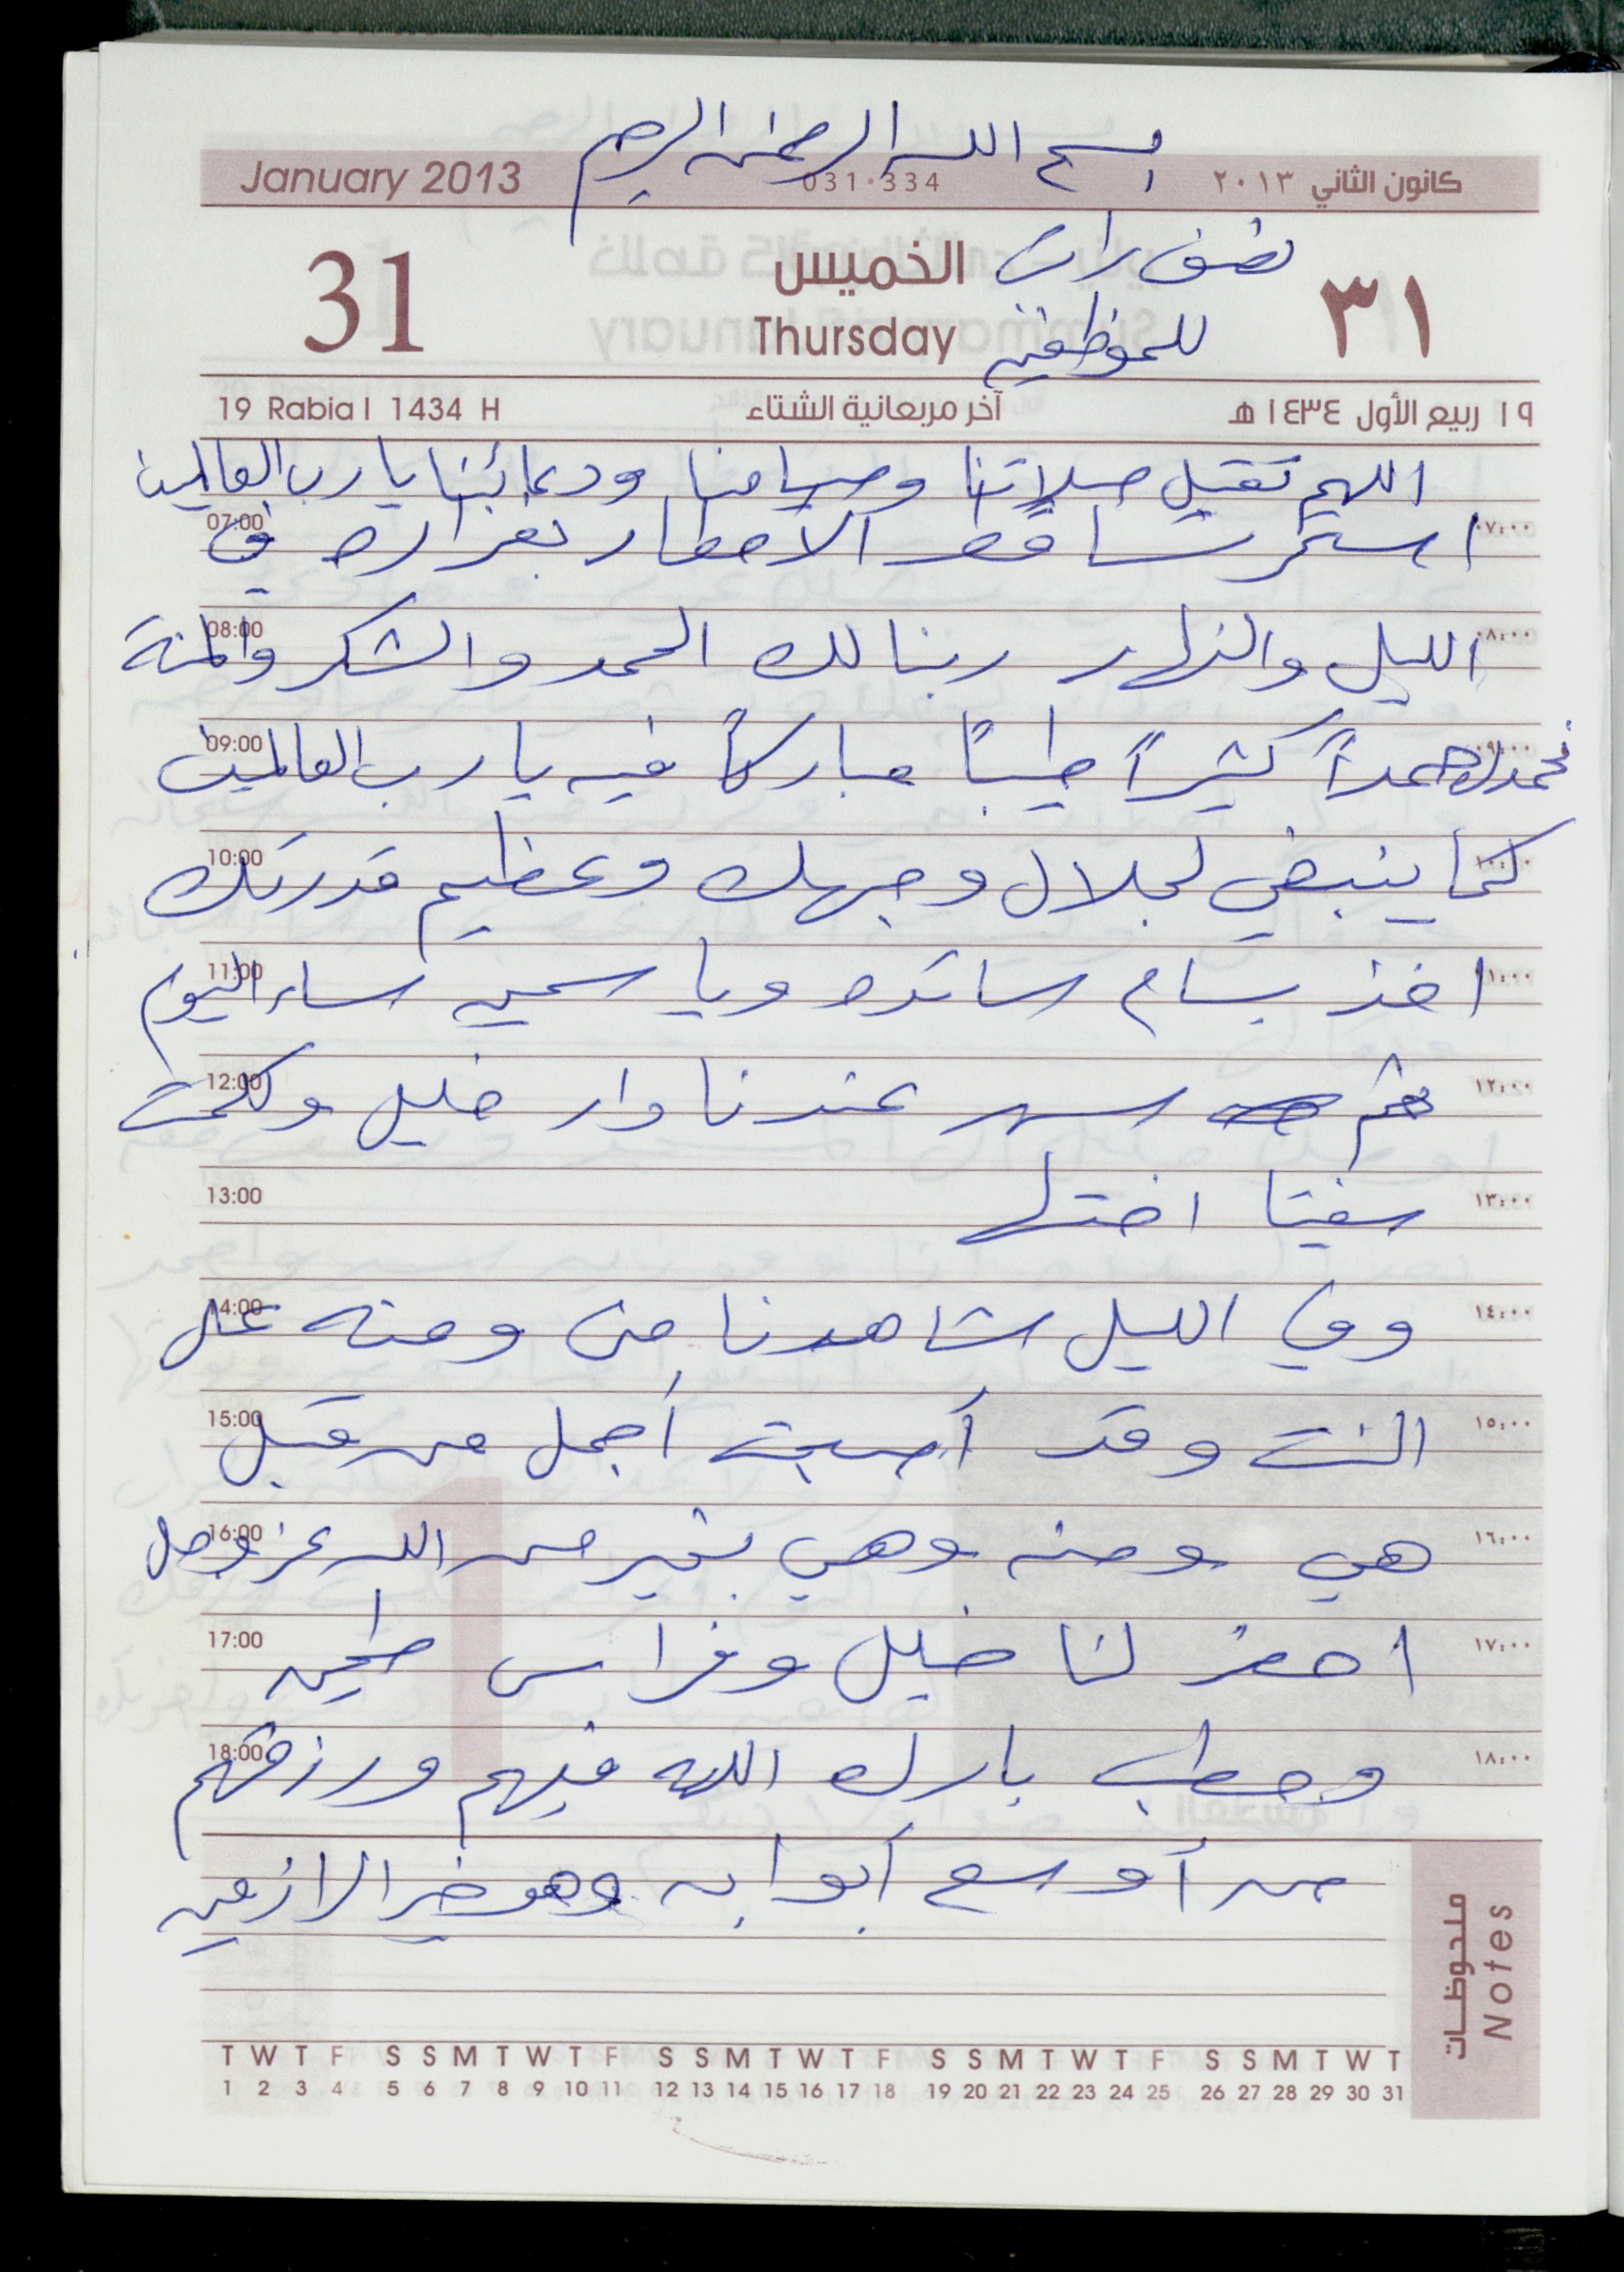 بسم الله الرحمن الرحيم
January 2013 031-334 كانون الثاني ٢٠١٣
نصف راتب
31 الخميس ٣١
Thursday للموظفين
19 Rabia I 1434 H آخر مربعانية الشتاء ١٩ ربيع الأول ١٤٣٤ هـ
اللهم تقبل صلاتنا وصيامنا ودعائنا يا رب العالمين
07:00 استمر تساقط الامطار بغزاره في ٠٧:٠٠
08:00 الليل والنهار ربنا لك الحمد والشكر والمنة ٠٨:٠٠
09:00 نحمدك حمداً كثيراً طيباً مباركاً فيه يا رب العالمين ٠٩:٠٠
10:00 كما ينبغي لجلال وجهك وعظيم قدرتك ١٠:٠٠
11:00 اخذ بسام ساتره ويا سمين مساء اليوم ١١:٠٠
12:00 ثم سهر عندنا دار خليل وكلمت ١٢:٠٠
13:00 سفيتا اختها ١٣:٠٠
14:00 وفي الليل شاهدنا من ومنه على ١٤:٠٠
15:00 النت وقد أصبحت أجمل من قبل ١٥:٠٠
16:00 هي ومنه وهي بخير من الله عز وجل ١٦:٠٠
17:00 احضر لنا خليل وفراس طحين ١٧:٠٠
18:00 وحطب بارك الله فيهم ورزقهم ١٨:٠٠
من أوسع أبوابه وهو خير الرازقين
ملحوظات
Notes
T W T F S S M T W T F S S M T W T F S S M T W T F S S M T W T
1 2 3 4 5 6 7 8 9 10 11 12 13 14 15 16 17 18 19 20 21 22 23 24 25 26 27 28 29 30 31